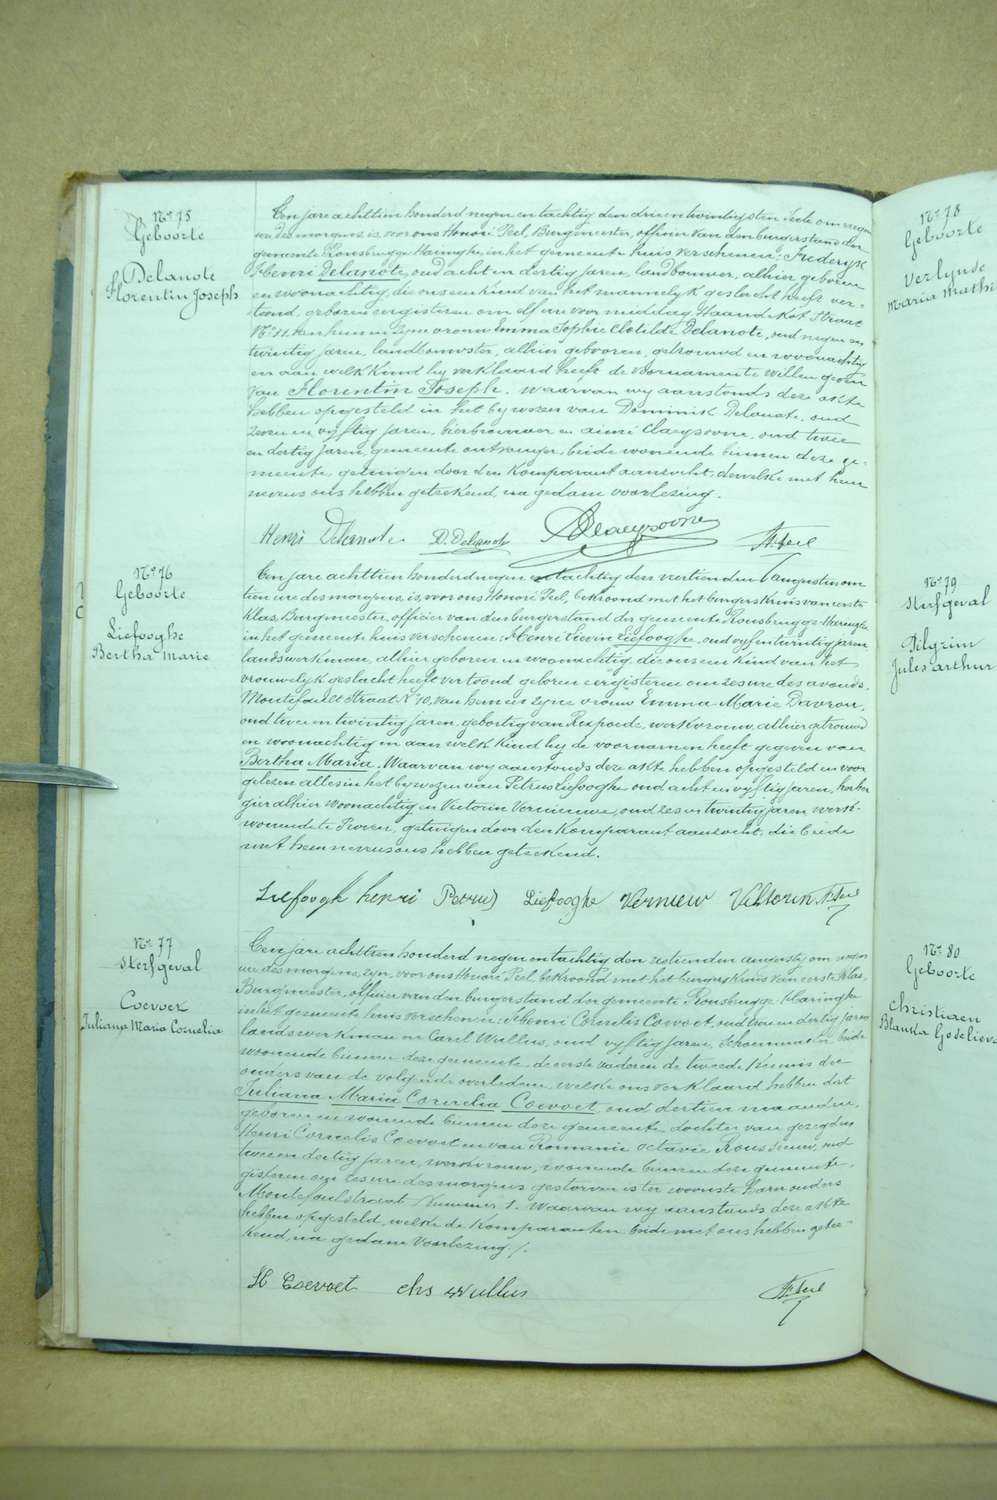 No 75
Geboorte
Delanote
Florentin Joseph
Een jare achttien honderd negen en tachtig den drie en twintigsten Julie om negen
ure des morgens is, voor ons Honoré Peel, Burgmeester, officier van den burgerstand der
gemeente Rousbrugge Haringhe, in het gemeente huis verschenen: Frederyk
Henri Delanote, oud acht en dertig jaren, landbouwer, alhier geboren
en woonachtig, die ons een kind van het mannelyk geslacht heeft ver-
toond, geboren eergisteren om elf ure voor middag Haandekot Straat
No 11. van hem en zyne vrouw Emma Sophie Clotilde Delanote, oud negen en
twintig jaren, landbouwster, alhier geboren, getrouwd en woonachtig
en aan welk kind hy verklaard heeft de voornamen te willen geven
van Florentin Joseph. waarvan wy aanstonds deze akte
hebben opgesteld in het bywezen van Dominik Delanote, oud
zeven en vyftig jaren, bierbrouwer en aimé Claeysoone, oud twee
en dertig jaren, gemeente ontvanger, beide wonende binnen deze ge-
meente, getuigen door den komparant aanzocht, dewelke met hem
nevens ons hebben geteekend, na gedane voorlezing.
Henri Delanote D. Delanote A Claeysoone H. Peel
No 76
Geboorte
Liefooghe
Bertha Marie
Een jare achttien honderd negen en tachtig den veertienden augusten om
tien ure des morgens, is, voor ons Honoré Peel, bekroond met het burgerskruis van eerste
klas, Burgmeester, officier van den burgerstand der gemeente Rousbrugge-Haringhe
in het gemeente huis verschenen: Henri Liefooghe, oud vyf en twintig jaren
landswerkman, alhier geboren en woonachtig, die ons een kind van het
vrouwelyk geslacht heeft vertoond geboren eergisteren om zes ure des avonds.
Straat No 10, van hem en zyne vrouw Emma Marie Davrou,
oud twee en twintig jaren, geboortig van Rexpoede, werkvrouw, alhier getrouwd
en woonachtig en aan welk kind hy de voornamen heeft gegeven van
Bertha Maria. Waarvan wy aanstonds deze akte hebben opgesteld en voor
gelezen alles in het bywezen van Petrus Liefooghe oud acht en vyftig jaren, herber
gier alhier woonachtig en Victorin Vernieuwe, oud zes en twintig jaren, werk-
wonende te Proven, getuigen door den komparant aanzocht, die beide
met hem nevens ons hebben geteekend.
Liefoogh henri Petrus Liefooghe Verniew Viktorin H. Peel
No 77
Sterfgeval
Coevoet
Juliana Maria Cornelia
Een jare achttien honderd negen en tachtig den zestienden augusty om negen
ure des morgens zyn, voor ons Honoré Peel bekroond met het burgerskruis van eerste klas,
Burgmeester, officier van den burgerstand der gemeente Rousbrugge-Haringhe
in het gemeente huis verschenen: Henri Cornelis Coevoet, oud twee en dertig jaren
landswerkman en Carel Wullus, oud vyftig jaren, Schoenmaker, beide
wonende binnen deze gemeente, de eerste vader en de tweede kennis der
ouders van de volgende overledene, welke ons verklaard hebben dat
Juliana Maria Cornelia Coevoet, oud dertien maanden,
geboren en wonende binnen deze gemeente, dochter van gezegden
Henri Cornelis Coevoet en van Romanie Octavie Rousseeuw, oud
twee en dertig jaren, werkvrouw, wonende binnen deze gemeente,
gisteren om zes ure des morgens gestorven is ter woonste harer ouders
Straat Nummer 1. Waarvan wy aanstonds deze akte
hebben opgesteld, welke de komparanten beide met ons hebben getee-
kend, na gedane voorlezing /.
H Coevoet chs Wullus H. Peel
No 78
Geboorte
Verlynde
Maria Mathi
No 79
Sterfgeval
Pilgrim
Jules arthur
No 80
Geboorte
Christiaen
Blanka Godeliev